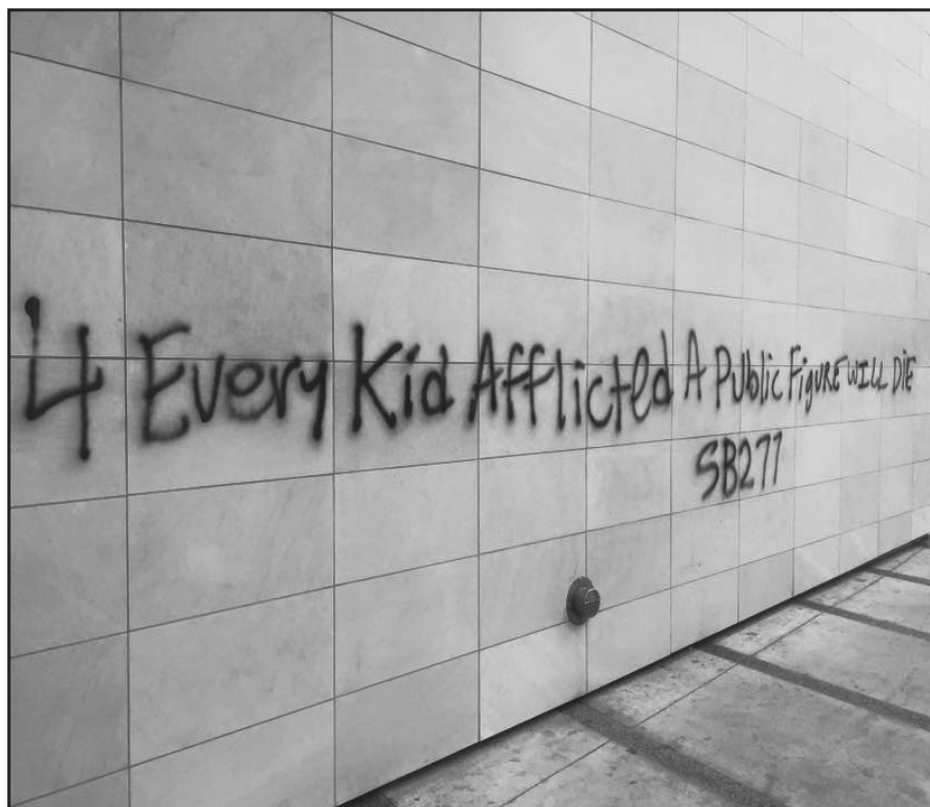 4 Every Kid Afflicted A Public FiguRE WILL DIE
SB277